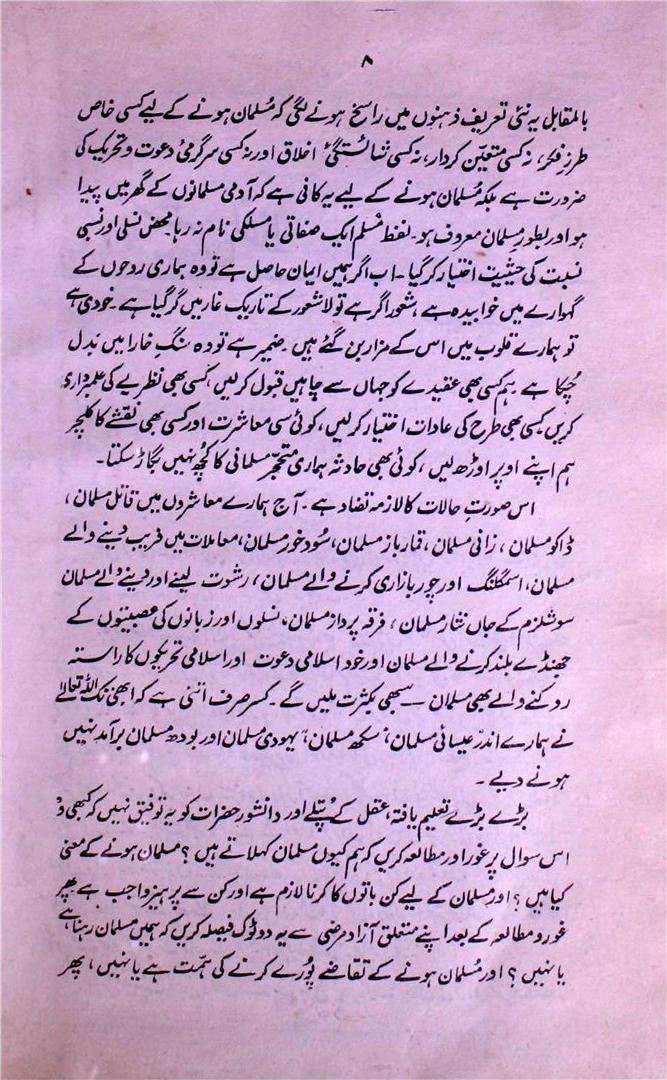 ۸
بالمقابل یہ نئی تعریف ذہنوں میں راسخ ہونے لگی کہ مُسلمان ہونے کے لیے کسی خاص
طرزِ فکر، نہ کسی متعیّن کردار، نہ کسی شائستگیٔ اخلاق اور نہ کسی سرگرمیٔ دعوت و تحریک کی
ضرورت ہے بلکہ مُسلمان ہونے کے لیے یہ کافی ہے کہ آدمی مسلمانوں کے گھر میں پیدا
ہو اور بطورِ مسلمان معروف ہو۔ لفظ مُسلم ایک صفاتی یا مسلکی نام نہ رہا، محض نسلی اور نسبی
نسبت کی حیثیت اختیار کر گیا۔ اب اگر ہمیں ایمان حاصل ہے تو وہ ہماری روحوں کے
گہوارے میں خوابیدہ ہے، شعور اگر ہے تو لاشعور کے تاریک غار میں گر گیا ہے۔ خودی ہے
تو ہمارے قلوب میں اس کے مزار بن گئے ہیں۔ ضمیر ہے تو وہ سنگِ خارا میں بدل
چُکا ہے۔ ہم کسی بھی عقیدے کو جہاں سے چاہیں قبول کر لیں، کسی بھی نظریے کی علمبرداری
کریں کسی بھی طرح کی عادات اختیار کر لیں، کوئی سی معاشرت اور کسی بھی نقشے کا کلچر
ہم اپنے اوپر اوڑھ لیں، کوئی بھی حادثہ ہماری متحجّر مسلمانی کا کُچھ نہیں بگاڑ سکتا۔
اس صورتِ حالات کا لازمہ تضاد ہے۔ آج ہمارے معاشروں میں قاتل مسلمان،
ڈاکو مسلمان، زانی مسلمان، قمار باز مسلمان، سُود خور مسلمان، معاملات میں فریب دینے والے
مسلمان، اسمگلنگ اور چور بازاری کرنے والے مسلمان، رشوت لینے اور دینے والے مسلمان
سوشلزم کے جاں نثار مسلمان، فرقہ پرداز مسلمان، نسلوں اور زبانوں کی عصبیتوں کے
جھنڈے بلند کرنے والے مسلمان اور خود اسلامی دعوت اور اسلامی تحریکوں کا راستہ
روکنے والے بھی مسلمان — سبھی بکثرت ملیں گے۔ کسر صرف اتنی ہے کہ ابھی تک اللہ تعالےٰ
نے ہمارے اندر عیسائی مسلمان، سکھ مسلمان، یہودی مسلمان اور بودھ مسلمان برآمد نہیں
ہونے دیے۔
بڑے بڑے تعلیم یافتہ، عقل کے پُتلے اور دانشور حضرات کو یہ توفیق نہیں کہ کبھی وہ
اس سوال پر غور اور مطالعہ کریں کہ ہم کیوں مسلمان کہلاتے ہیں؟ مسلمان ہونے کے معنی
کیا ہیں؟ اور مسلمان کے لیے کن باتوں کا کرنا لازم ہے اور کن سے پرہیز واجب ہے پھر
غور و مطالعہ کے بعد اپنے متعلق آزاد مرضی سے یہ دو ٹوک فیصلہ کریں کہ ہمیں مسلمان رہنا ہے
یا نہیں؟ اور مُسلمان ہونے کے تقاضے پُورے کرنے کی ہمّت ہے یا نہیں، پھر